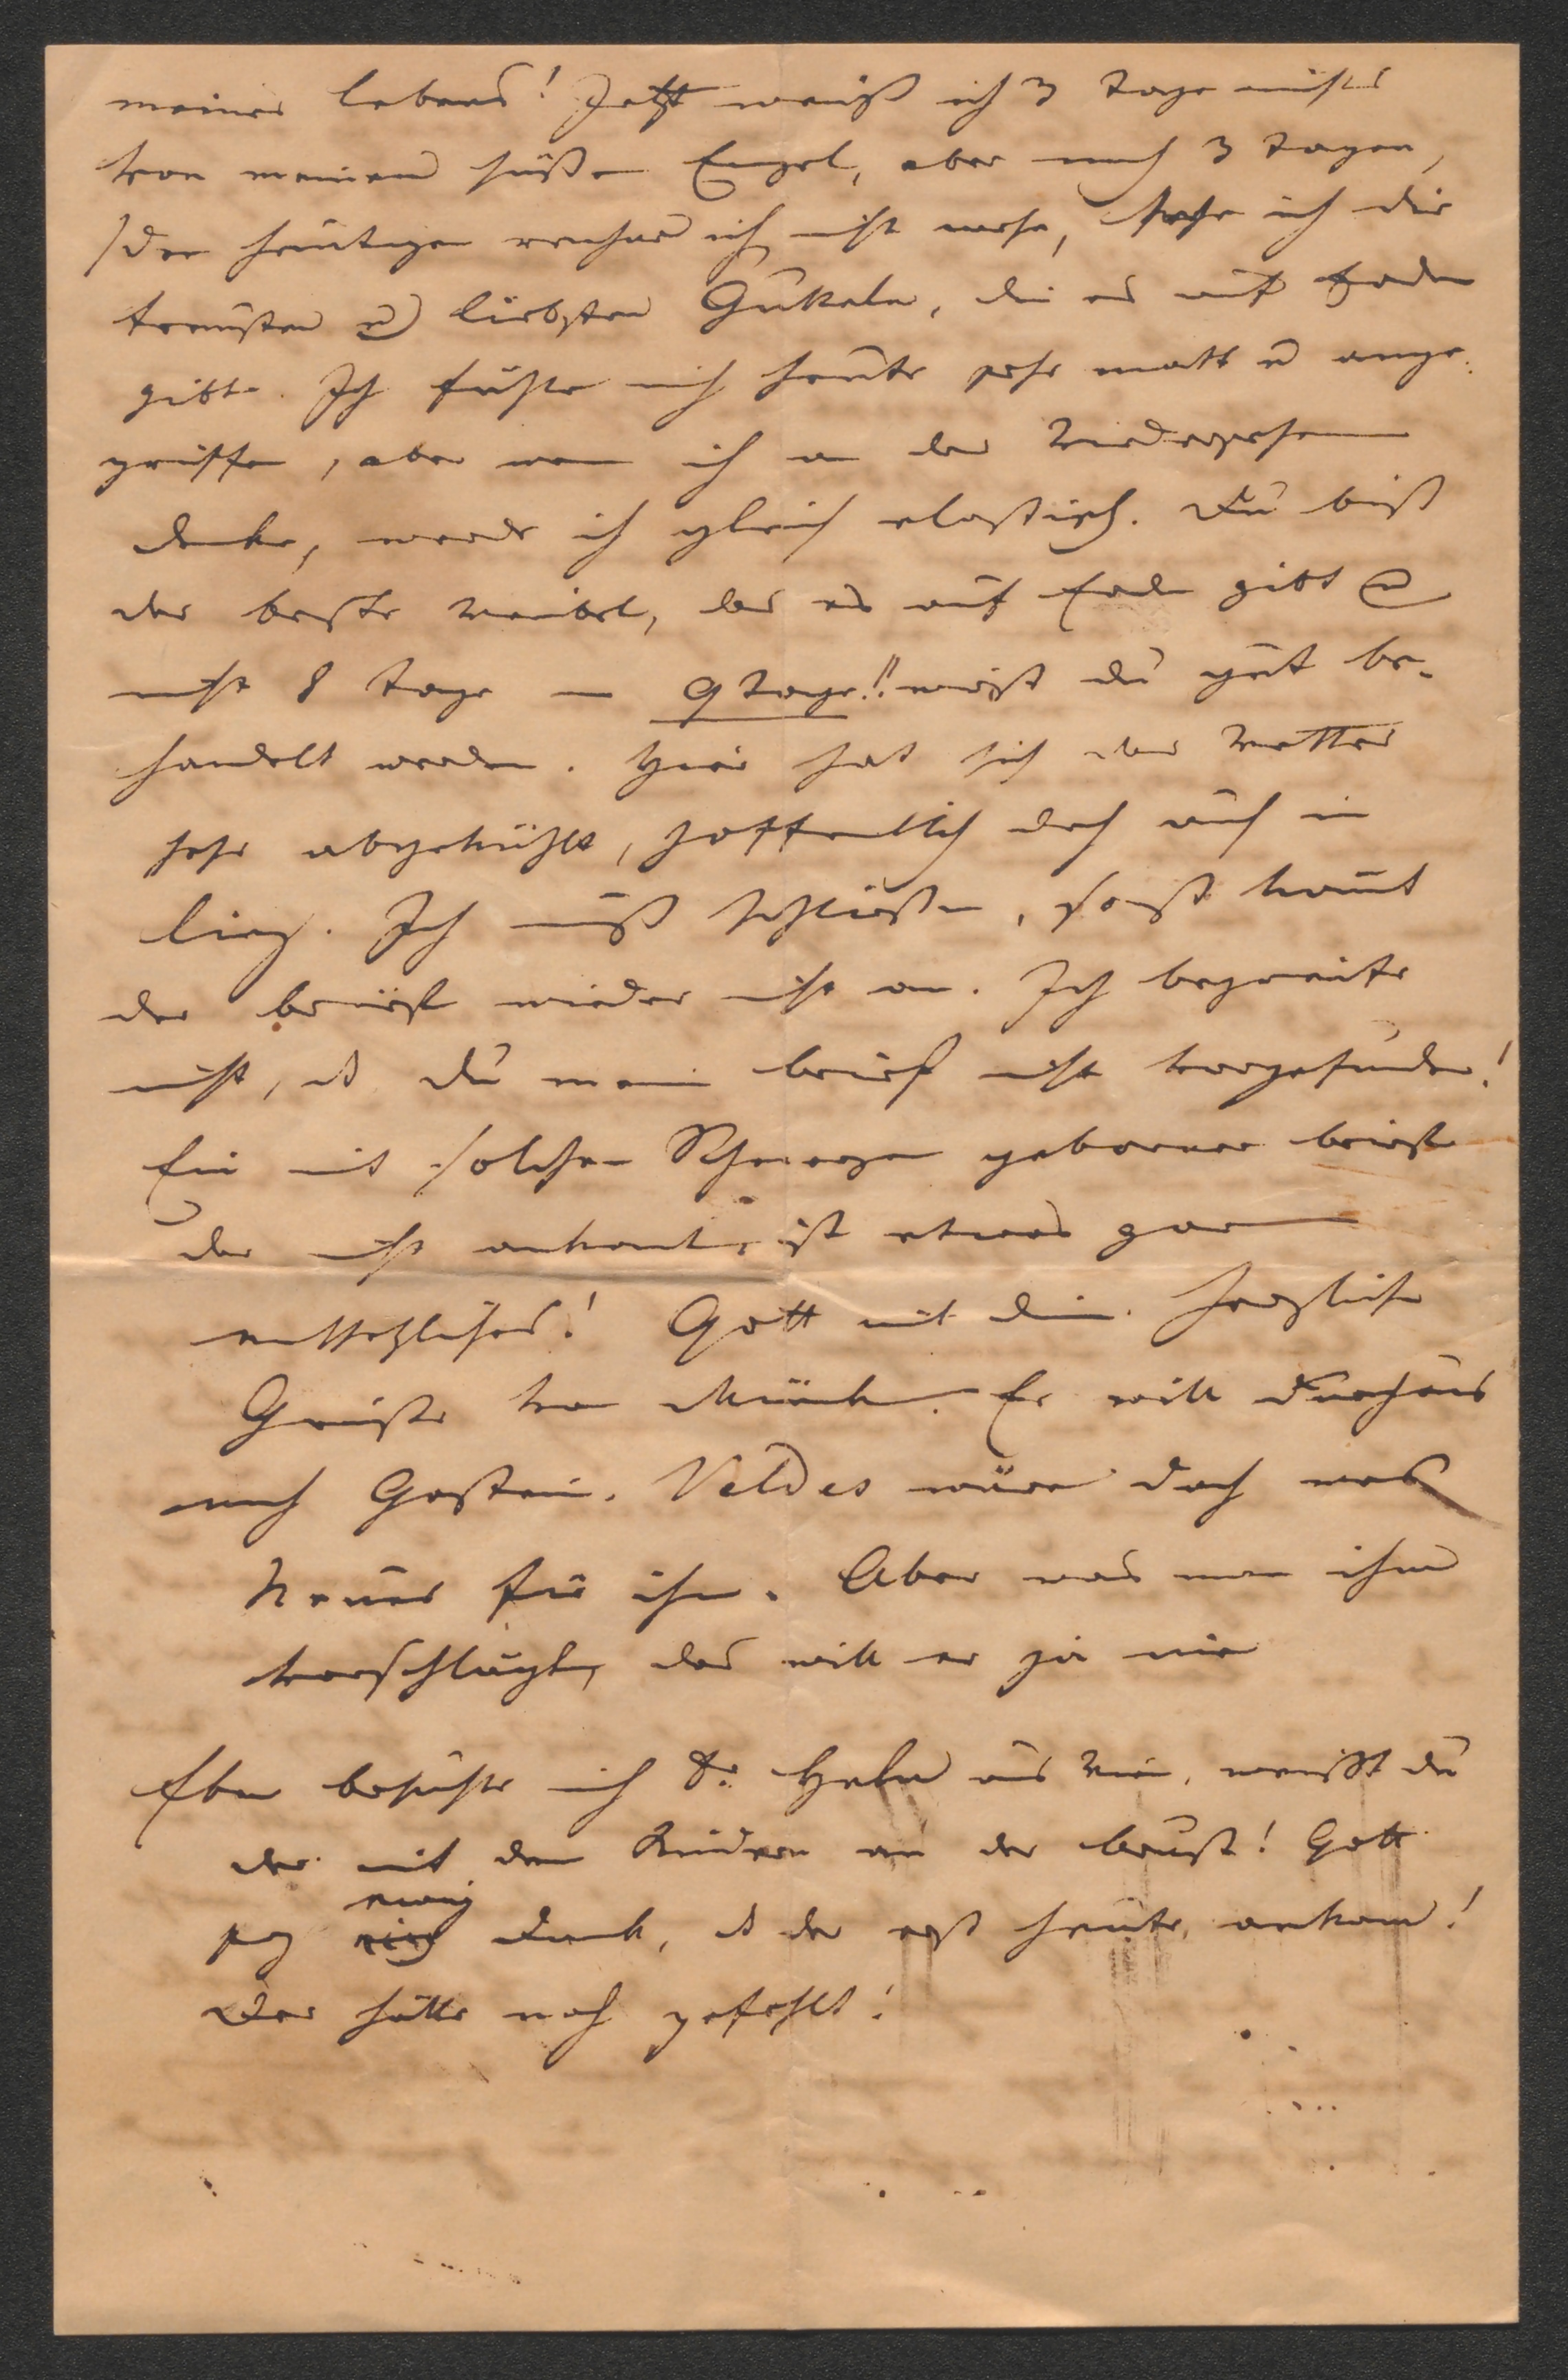 meines Lebens! Jetzt weiß ich 3 Tage nichts
von meinem süßen Engel, aber nach 3 Tagen,
/den heutigen rechne ich nicht mehr, sehe ich die
treuesten u liebsten Gukeln, die es auf Erden
gibt. Ich fühle mich heute sehr matt u ange-
griffen, aber wen ich an das Wiedersehen
denke, werde ich gleich elastisch. Du bist
das beste Weibel, das es auf Erden gibt u
nicht 8 Tage – 9 Tage!! wirst du gut be-
handelt werden. Hier hat sich das Wetter
sehr abgekühlt, hoffentlich doch auch in
Linz. Ich muß schließen, sonst komt
der Brief wieder nicht an. Ich begreife
nicht, dß Du mein Brief nicht vorgefunden!
Ein mit solchen Schmerzen geborner Brief
der nicht ankomt, ist etwas gar
entsetzliches! Gott mit dir. Herzliche
Grüße von Munk. Er will durchaus
nach Gastein. Veldes wäre doch was
Neues für ihn. Aber was man ihm
vorschlägt, das will er ja nie
Eben besuchte mich Dr. Helm aus Wien, weißt du
der mit den Kindern an der Brust! Gott
sey ewig Dank, dß der erst heute ankam!
Der hätte noch gefehlt!